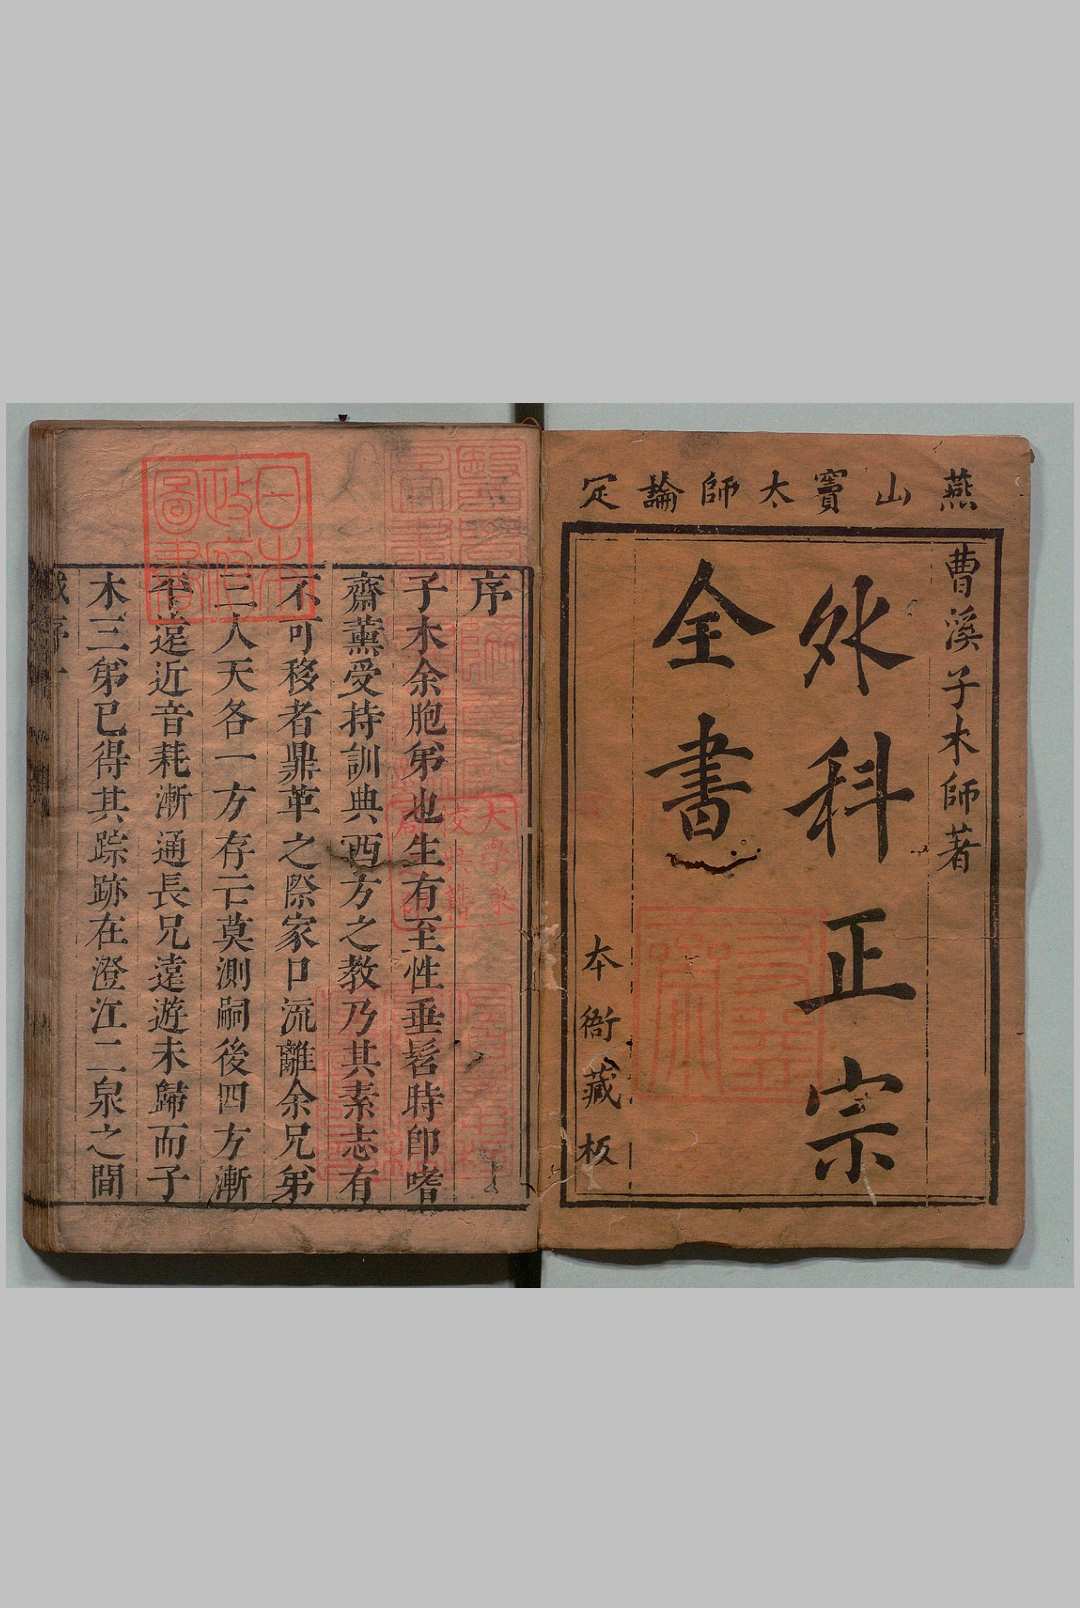 燕山竇太師論定
曹溪子木師著
外科正宗
全書
本衙藏板
序
子木余胞弟也生有至性垂髫時即嗜
齋薰受持訓典西方之教乃其素志有
不可移者鼎革之際家口流離余兄弟
三人天各一方存亡莫測嗣後四方漸
平遠近音耗漸通長兄遠遊未歸而子
木三弟已得其踪跡在澄江二泉之間
日本
政府
圖書
大學東